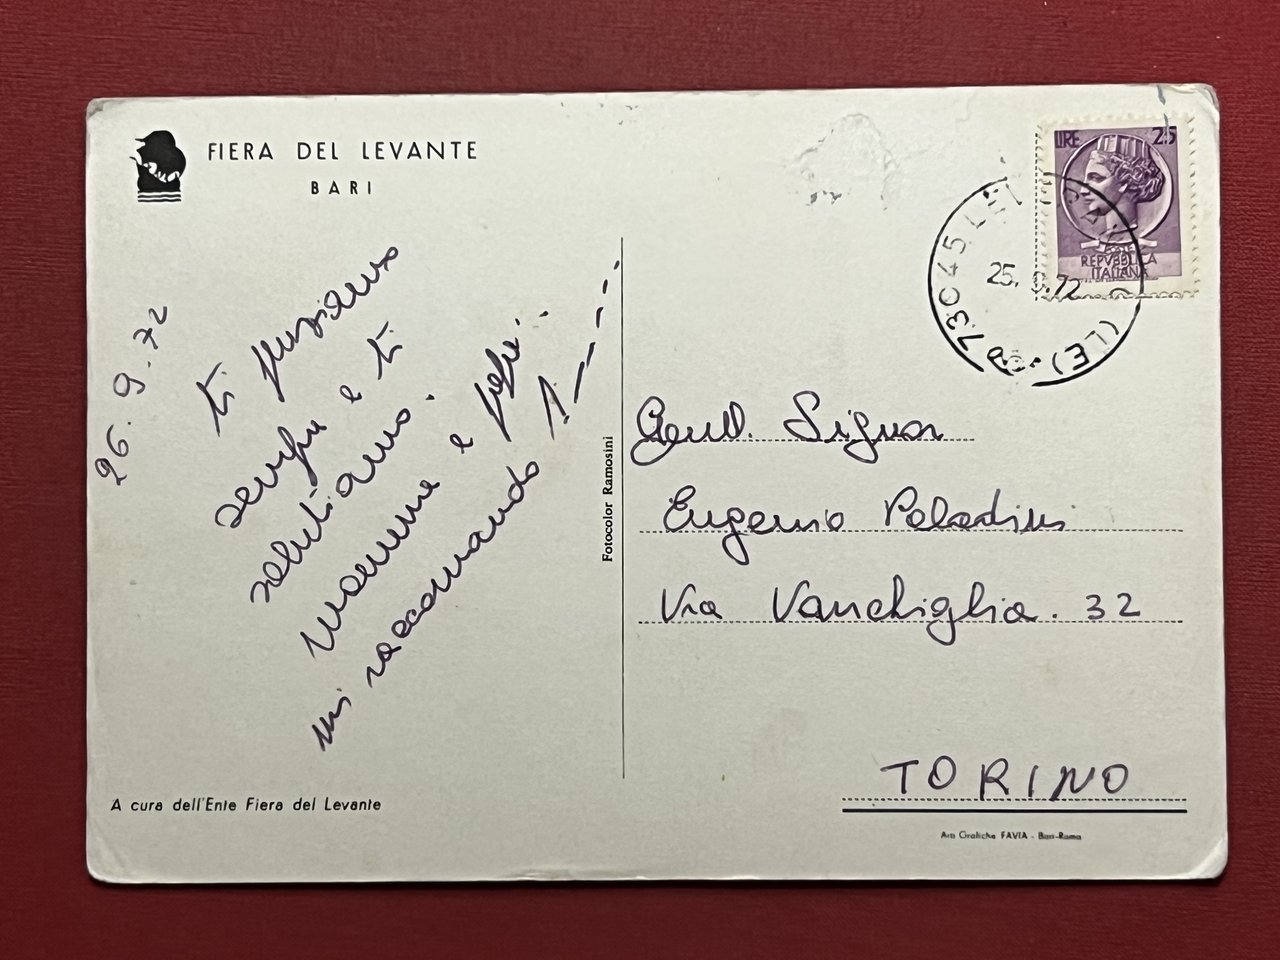 FIERA DEL LEVANTE
BARI
26.9.72
ti pensiamo
sempre e ti
salutiamo.
mamma e papà..
mi raccomando
A cura dell'Ente Fiera del Levante
Fotocolor Ramosini
LIRE 25
POSTE
REPVBBLICA
ITALIANA
73045 LE
25. 9.72
(LE)
Gent. Signor
Eugenio Paladini
Via Vanchiglia. 32
TORINO
Arti Grafiche FAVIA - Bari-Roma